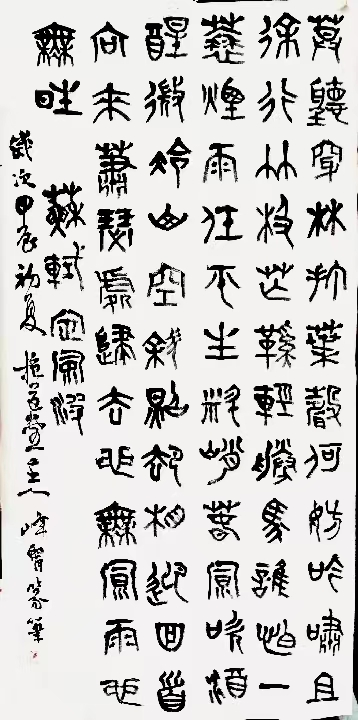 莫聽穿林打葉聲何妨吟嘯且
徐行竹杖芒鞋輕勝馬誰怕一
蓑煙雨任平生料峭春風吹
醒微冷山空斜照卻相迎回首
向來蕭瑟處歸去也無風雨也
無晴
蘇軾定風波
歲次甲辰初夏 堂主人